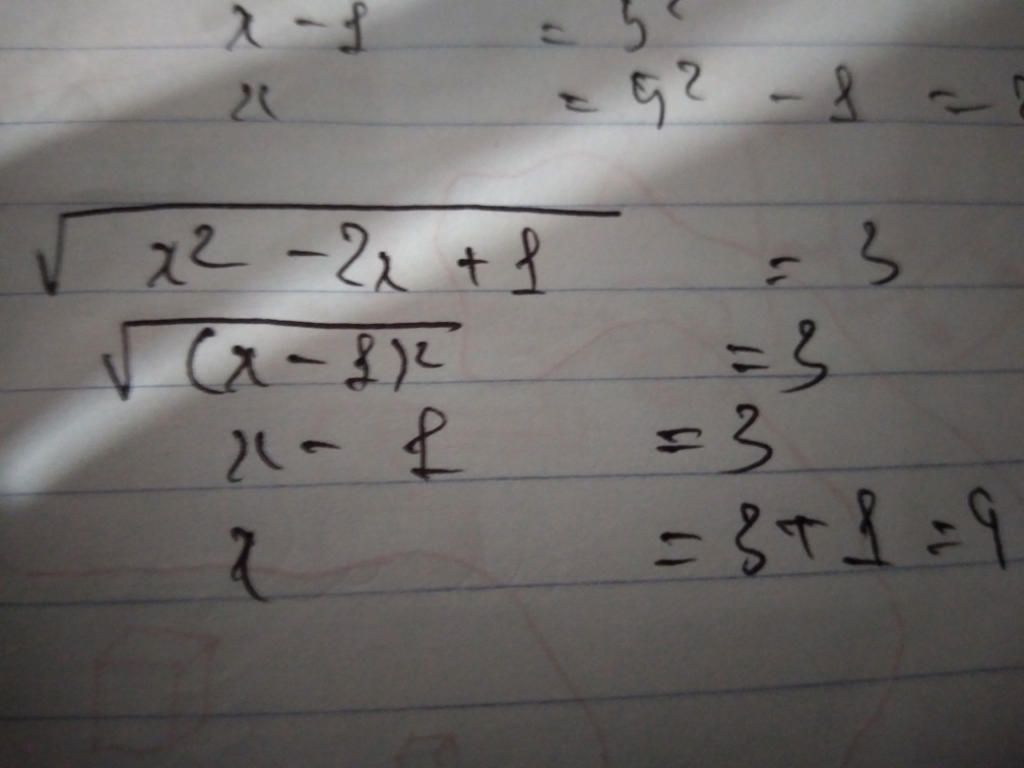 x - 1 =
x = - 1 =
√(x² - 2x + 1) = 3
√((x - 1)²) = 3
x - 1 = 3
x = 3 + 1 = 4